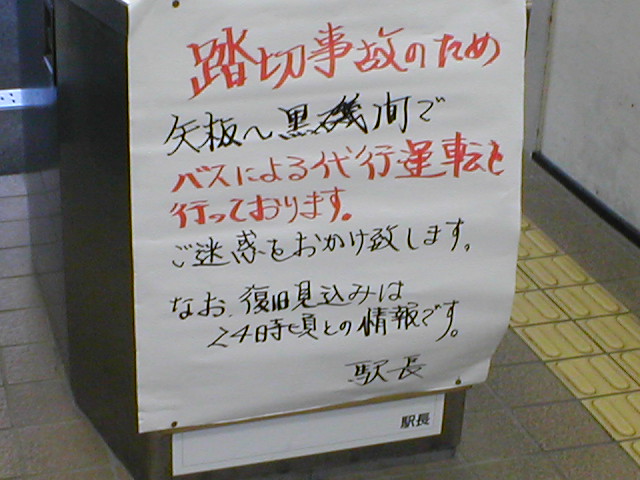 踏切事故のため
矢板〜黒磯間で
バスによる代行運転を
行っております。
ご迷惑をおかけ致します。
なお、復旧見込みは
24時頃との情報です。
駅長
駅長